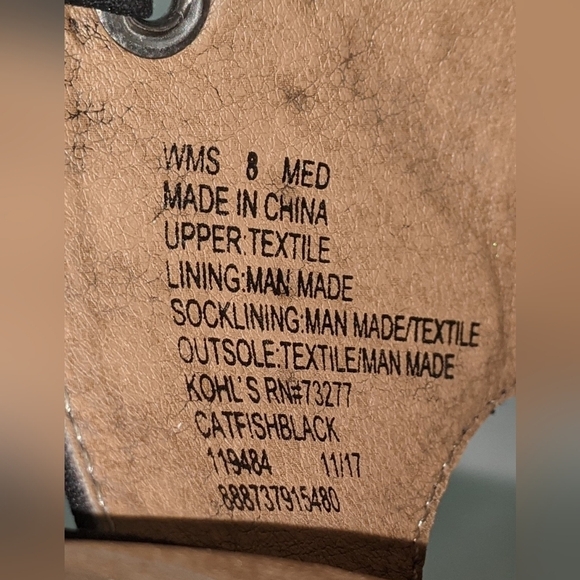 WMS 8 MED
MADE IN CHINA
UPPER:TEXTILE
LINING:MAN MADE
SOCKLINING:MAN MADE/TEXTILE
OUTSOLE:TEXTILE/MAN MADE
KOHL'S RN#73277
CATFISHBLACK
119484 11/17
888737915480